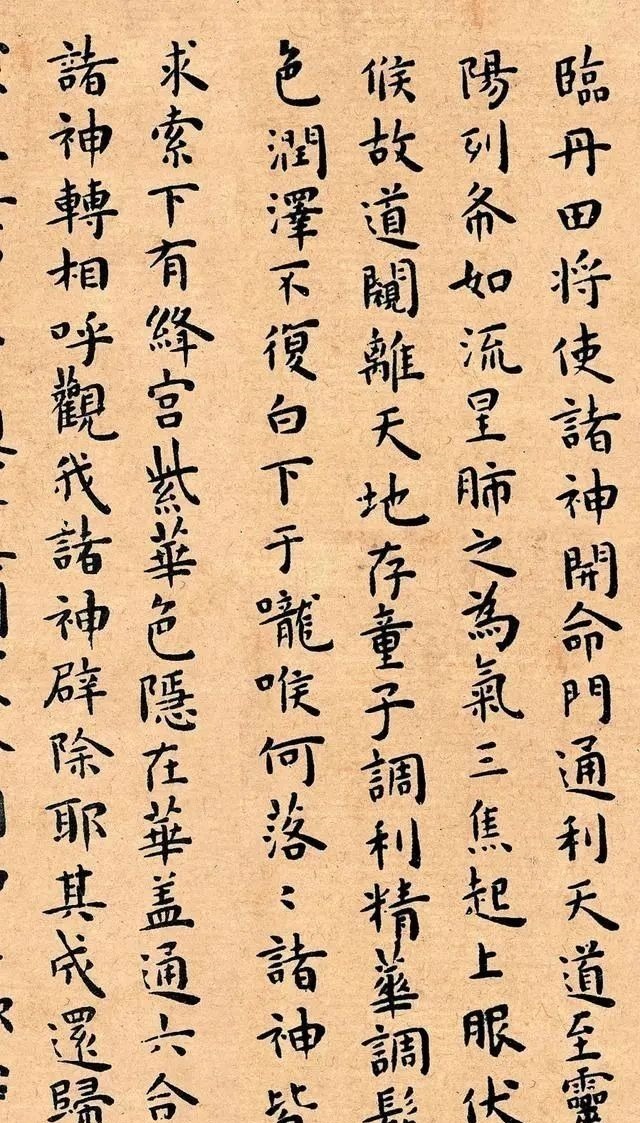 臨丹田将使諸神開命門通利天道至靈
陽列布如流星肺之為氣三焦起上服伏
候故道闚離天地存童子調利精華調髮
色潤澤不復白下于嚨喉何落〻諸神皆
求索下有絳宫紫華色隱在華盖通六合
諸神轉相呼觀我諸神辟除耶其成還歸